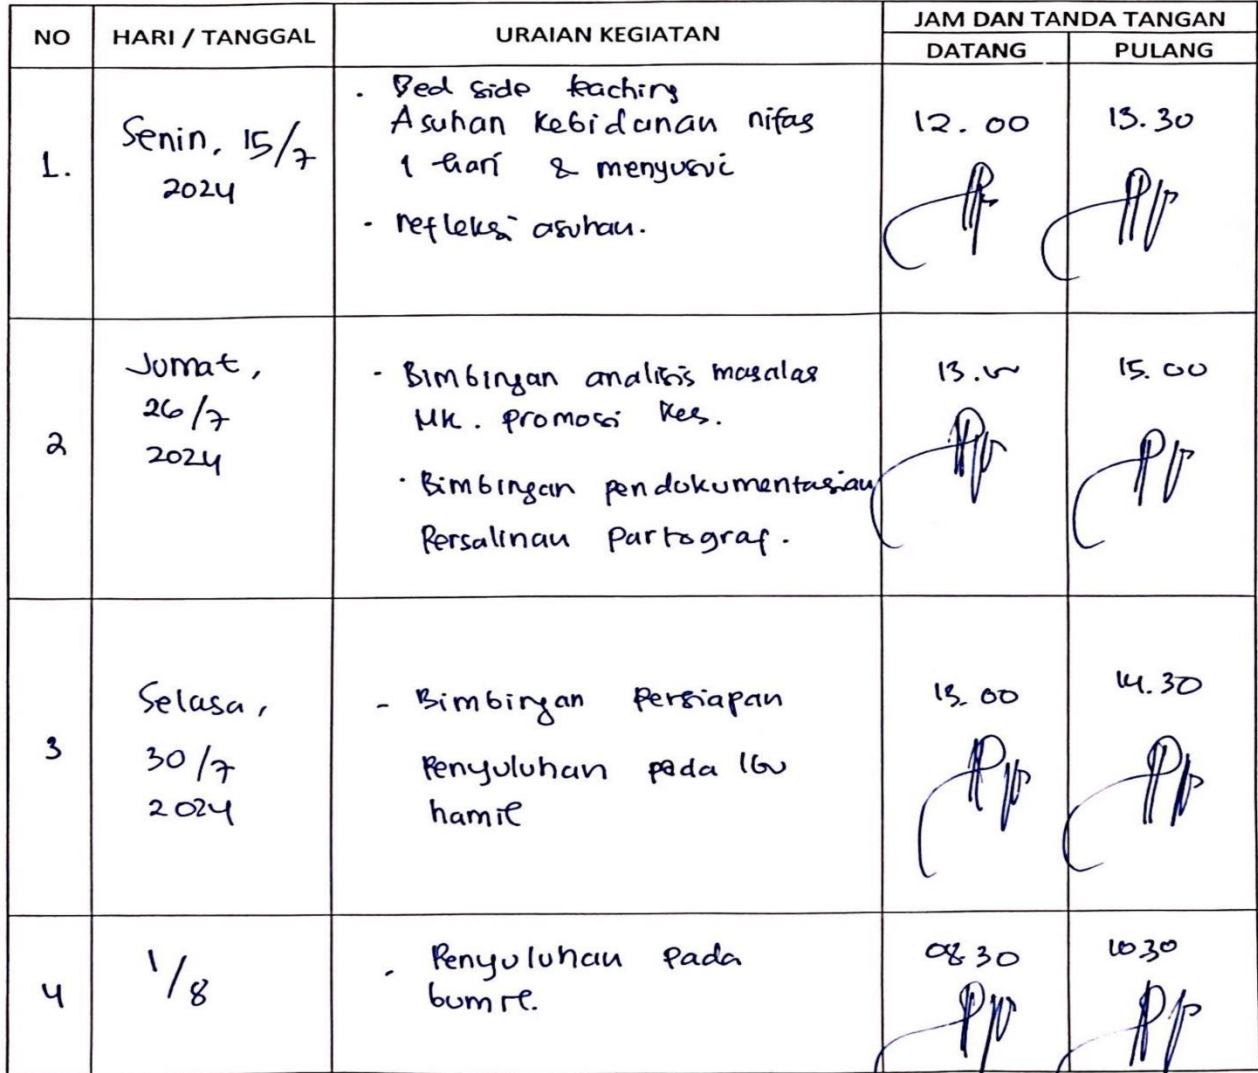 NO HARI / TANGGAL URAIAN KEGIATAN JAM DAN TANDA TANGAN
DATANG PULANG
1. Senin, 15/7 2024
. Bed side teaching
Asuhan Kebidanan nifas
1 hari & menyusui
- refleksi asuhan.
12.00 13.30
2 Jumat, 26/7 2024
- Bimbingan analisis masalas
MK. promosi Kes.
. Bimbingan pendokumentasian
Persalinan Partograf.
13. 15.00
3 Selasa, 30/7 2024
- Bimbingan Persiapan
Penyuluhan pada Ibu
hamil
13.00 14.30
4 1/8
- Penyuluhan Pada
bumil.
08.30 10.30